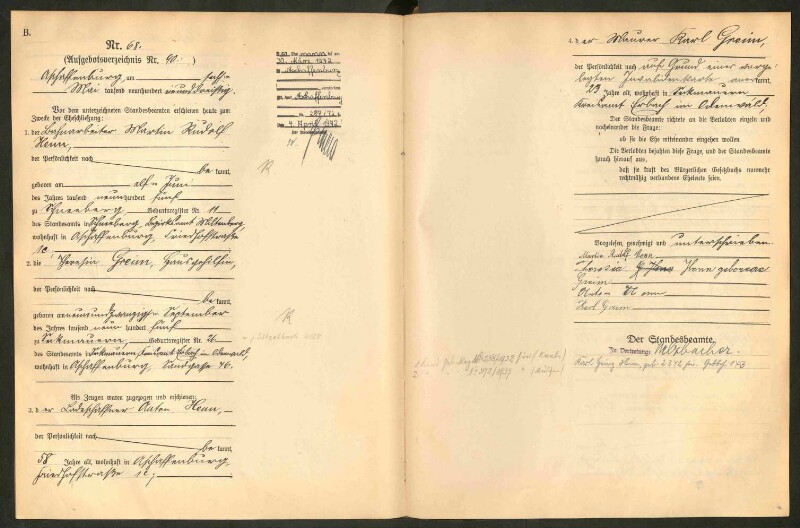 B.
Nr. 68.
(Aufgebotsverzeichnis Nr. 90.)
Aschaffenburg am sech=
ten Mai tausend neunhundert neunundzwanzig.
Vor dem unterzeichneten Standesbeamten erschienen heute zum
Zwecke der Eheschließung:
1. der Bahnarbeiter Martin Rudolf
Henn,
der Persönlichkeit nach
be kannt,
geboren am elf= Juni
des Jahres tausend neunhundert fünf
zu Schneeberg, Geburtsregister Nr. 11
des Standesamts in Schneeberg, Bezirksamt Miltenberg,
wohnhaft in Aschaffenburg, Friedhofstraße
1c;
2. die Greim, Hausgehilfin,
der Persönlichkeit nach
be kannt,
geboren am neunundzwanzig= September
des Jahres tausend neunhundert fünf
zu Seckmauern, Geburtsregister Nr. 26
des Standesamts Seckmauern, Kreisamt Erbach im Odenwald,
wohnhaft in Aschaffenburg, Sandgasse 46.
Als Zeugen waren zugezogen und erschienen:
3. der Ladeschaffner Anton Henn,
der Persönlichkeit nach
be kannt,
58 Jahre alt, wohnhaft in Aschaffenburg,
Friedhofstraße 1c;
März 1942
Aschaffenburg
Aschaffenburg
289/42
9. April 1942
4. der Maurer Karl Greim,
der Persönlichkeit nach auf Grund einer vorge=
legten Invalidenkarte aner kannt,
23 Jahre alt, wohnhaft in Seckmauern,
Kreisamt Erbach im Odenwald;
Der Standesbeamte richtete an die Verlobten einzeln und
nacheinander die Frage:
ob sie die Ehe miteinander eingehen wollen
Die Verlobten bejahten diese Frage, und der Standesbeamte
sprach hierauf aus,
daß sie kraft des Bürgerlichen Gesetzbuchs nunmehr
rechtmäßig verbundene Eheleute seien.
Vorgelesen, genehmigt und unterschrieben
Martin Rudolf Henn
Henn geborene
Greim
Anton Henn
Karl Greim
Der Standesbeamte.
In Vertretung: